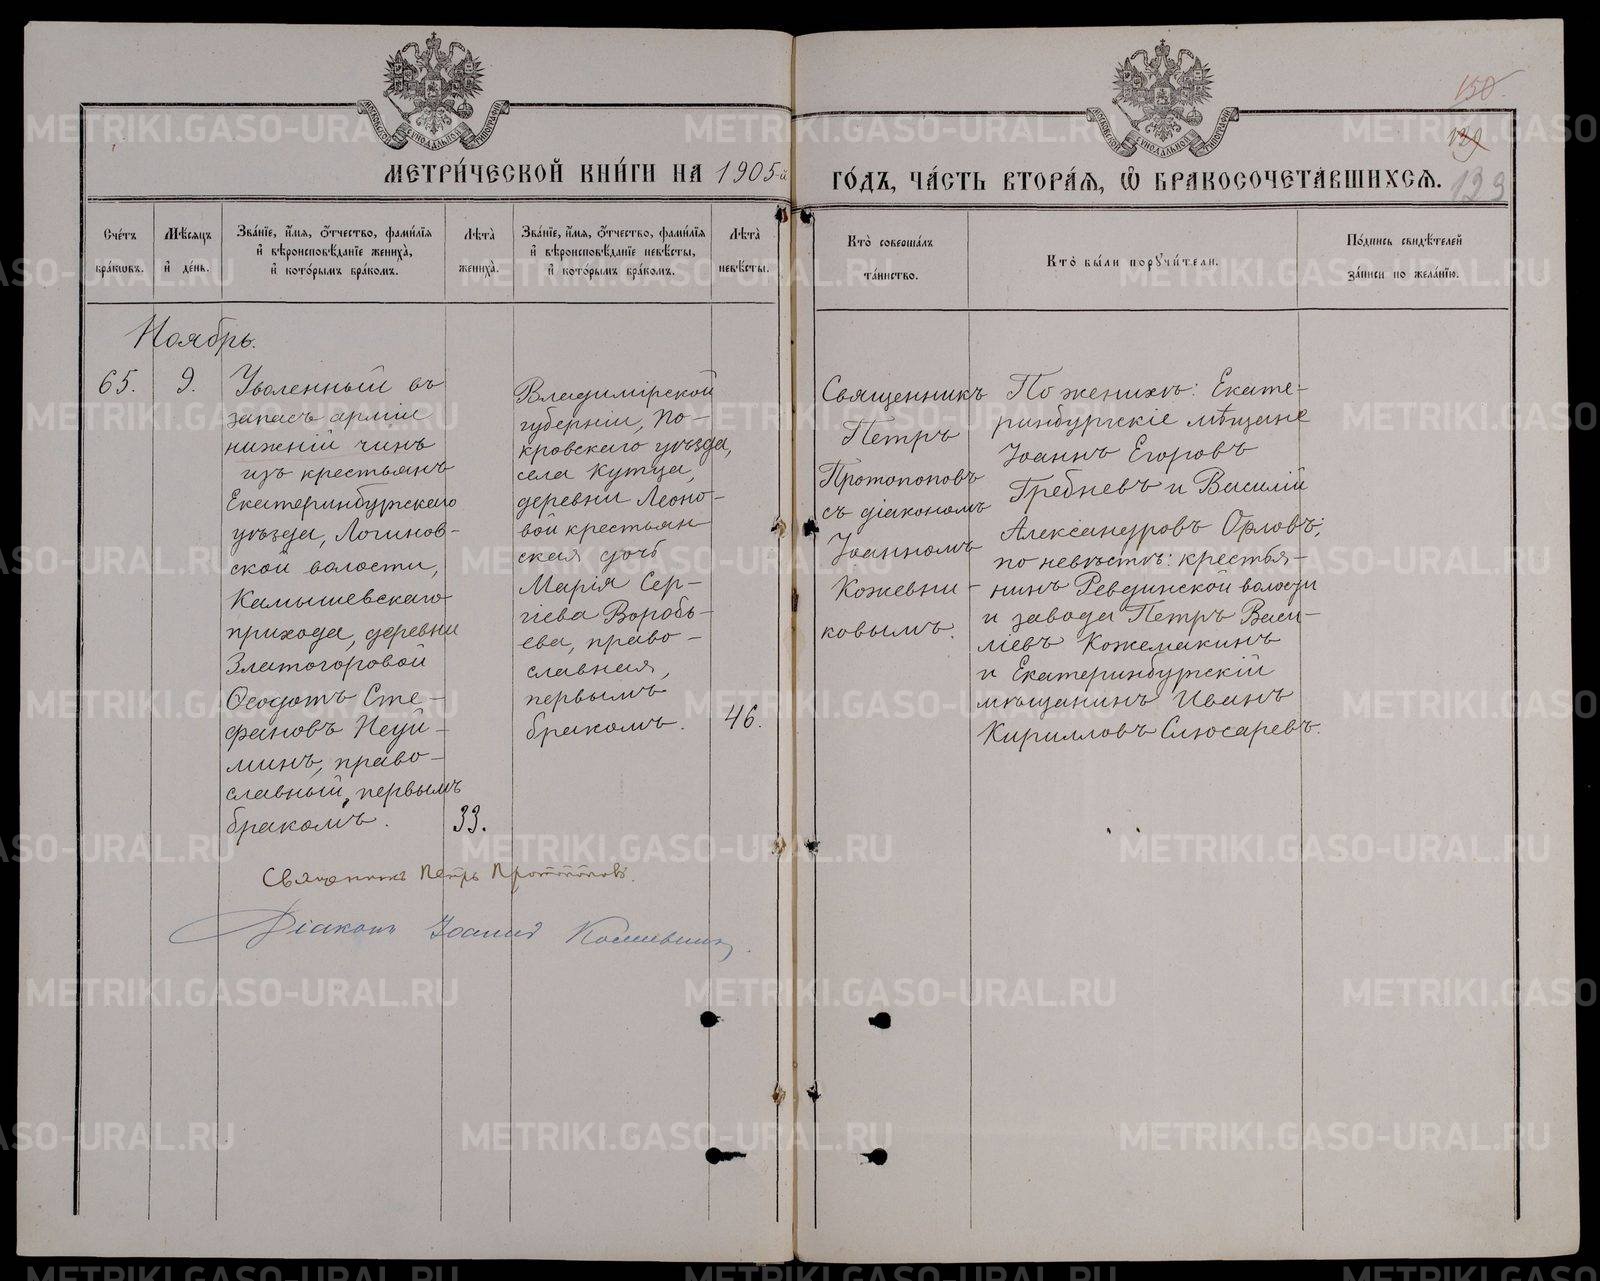 150
129
129
МОСКОВСКОЙ СѴНОДАЛЬНОЙ ТИПОГРАФІИ
МОСКОВСКОЙ СѴНОДАЛЬНОЙ ТИПОГРАФІИ
МЕТРИ́ЧЕСКОЙ КНИ́ГИ НА 1905-й
ГО́ДЪ, ЧА́СТЬ ВТОРА́Я, Ѽ БРАКОСОЧЕТА́ВШИХСѦ.
Сче́тъ
бра́кѡвъ.
Мѣ́сѧцъ
и҆ де́нь.
Зва́нїе, и҆́мѧ, ѻ҆́тчество, фами́лїѧ
и҆ вѣроисповѣ́данїе жениха̀,
и҆ кото́рымъ бра́комъ.
Лѣ́та̀
жениха̀.
Зва́нїе, и҆́мѧ, ѻ҆́тчество, фами́лїѧ
и҆ вѣроисповѣ́данїе невѣ́сты,
и҆ кото́рымъ бра́комъ.
Лѣ́та̀
невѣ́сты.
Кто̀ соверша́лъ
та́инство.
Кто̀ бы́ли поручи́тели.
По́дпись свидѣ́телей
за́писи по жела́нїю.
Ноябрь.
65.
9.
Уволенный въ
запасъ арміи
нижній чинъ
изъ крестьянъ
Екатеринбургскаго
уѣзда, Логинов-
ской волости,
Камышевскаго
прихода, деревни
Златогоровой
Ѳеодотъ Сте-
фановъ Неуй-
минъ, право-
славный, первымъ
бракомъ.
33.
Владимірской
губерніи, По-
кровскаго уѣзда,
села Кутца,
деревни Леоно-
вой крестьян
ская дочь
Марія Сер-
гіева Воробь-
ева, право-
славная,
первымъ
бракомъ.
46.
Священникъ
Петръ
Протопоповъ
съ діакономъ
Іоанномъ
Кожевни-
ковымъ.
По женихѣ: Екате-
ринбургскіе мѣщане
Іоаннъ Егоровъ
Гребневъ и Василій
Александровъ Орловъ;
по невѣстѣ: крестья-
нинъ Ревдинской волости
и завода Петръ Васи-
ліевъ Кожемякинъ
и Екатеринбургскій
мѣщанинъ Иванъ
Кирилловъ Слюсаревъ.
Священникъ Петръ Протопоповъ.
Діаконъ Іоаннъ Кожевник.
METRIKI.GASO-URAL.RU